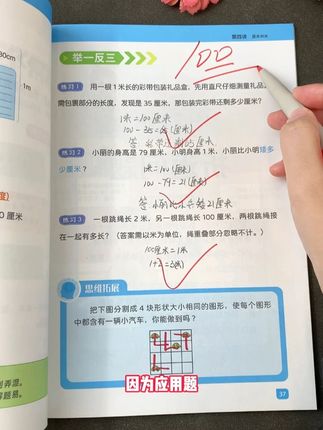 第四讲 厘米和米
举一反三
100
30cm
1m
练习1 用一根1米长的彩带包装礼品盒，先用直尺仔细测量礼品盒
需包裹部分的长度，发现是35厘米，那包装完彩带还剩多少厘米？
1米=100厘米
练习2 小丽的身高是79厘米，小明身高1米，小丽比小明矮多
少厘米？
1米=100厘米
100-79=21(厘米)
练习3 一根跳绳长2米，另一根跳绳长100厘米，两根跳绳接
在一起有多长？（答案需以米为单位，绳重叠部分忽略不计。）
100厘米=1米
思维拓展
把下图分割成4块形状大小相同的图形，使每个图形
中都含有一辆小汽车，你能做到吗？
厘米
因为应用题
37